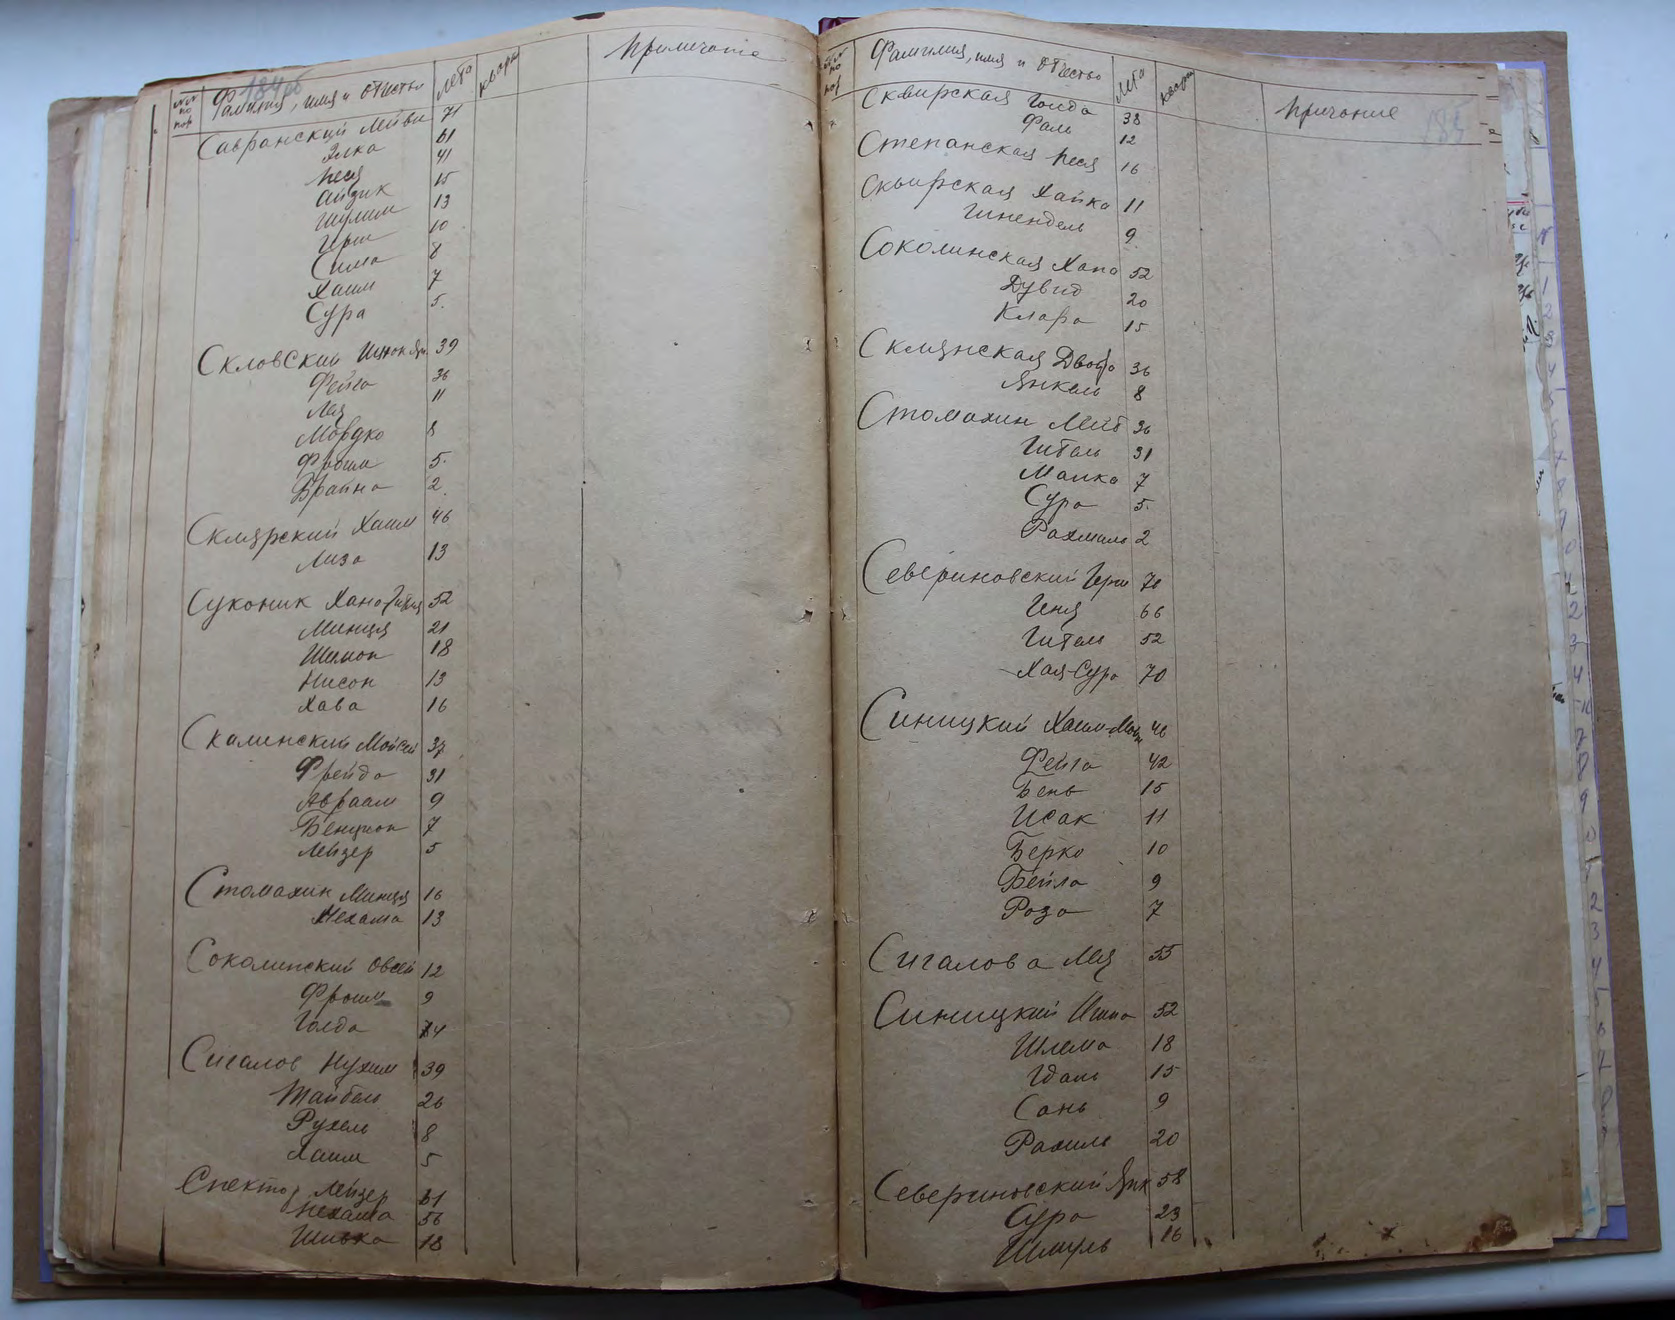 184об
№№ по пор Фамилия, имя и отество Лета кварт Примичание
Савранский Лейви 71
Элка 61
Песя 41
Айзик 15
Шулим 13
Герш 10
Сима 8
Хаим 7
Сура 5.
Скловский Ицхок 39
Фейга 36
Лея 11
Мордко 8
Фроим 5.
Брайна 2
Склярский Хаим 46
Лиза 13
Суконик Хана 52
Минця 21
Шимон 18
Нисон 13
Хава 16
Скалинский Мойсей 37
Фрейда 31
Авраам 9
Бенцион 7
Лейзер 5
Стомахин Минця 16
Нехама 13
Соколинский Овсей 12
Фроим 9
Голда 74
Сигалов Нухим 39
Тайбель 26
Рухель 8
Хаим 5
Спектор Лейзер 61
Нехама 56
Шивка 18
№№ по пор Фамилия, имя и отество Лета кварт Причание
185
Сквирская Голда 38
Фаль 12
Степанская Песя 16
Сквирская Хайка 11
Шнендель 9
Соколинская Хана 52
Дувид 20
Клара 15
Склянская Двойра 36
Янкель 8
Стомахин Лейб 36
Гитель 31
Малка 7
Сура 5.
Рахмиль 2
Севериновский Герш 70
Геня 66
Гитель 52
Хая-Сура 70
Синицкий Хаим 46
Фейга 42
Бень 15
Исак 11
Берко 10
Бейла 9
Роза 7
Сигалова Лея 55
Синицкий 52
Шлема 18
Гдаль 15
Сань 9
Рахиль 20
Севериновский Янк 58
Сура 23
Шмуль 16